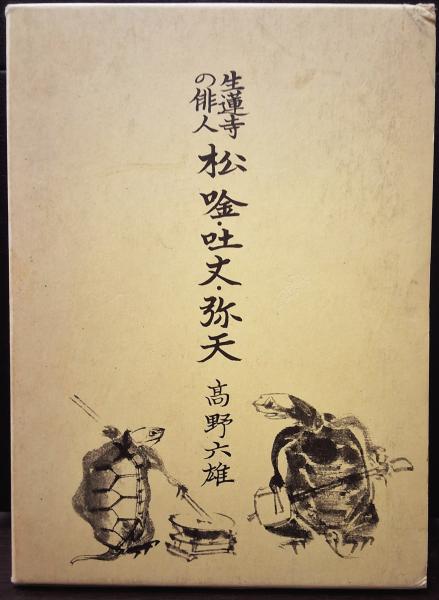 生蓮寺
の俳人
松唫・吐丈・弥天
髙野六雄